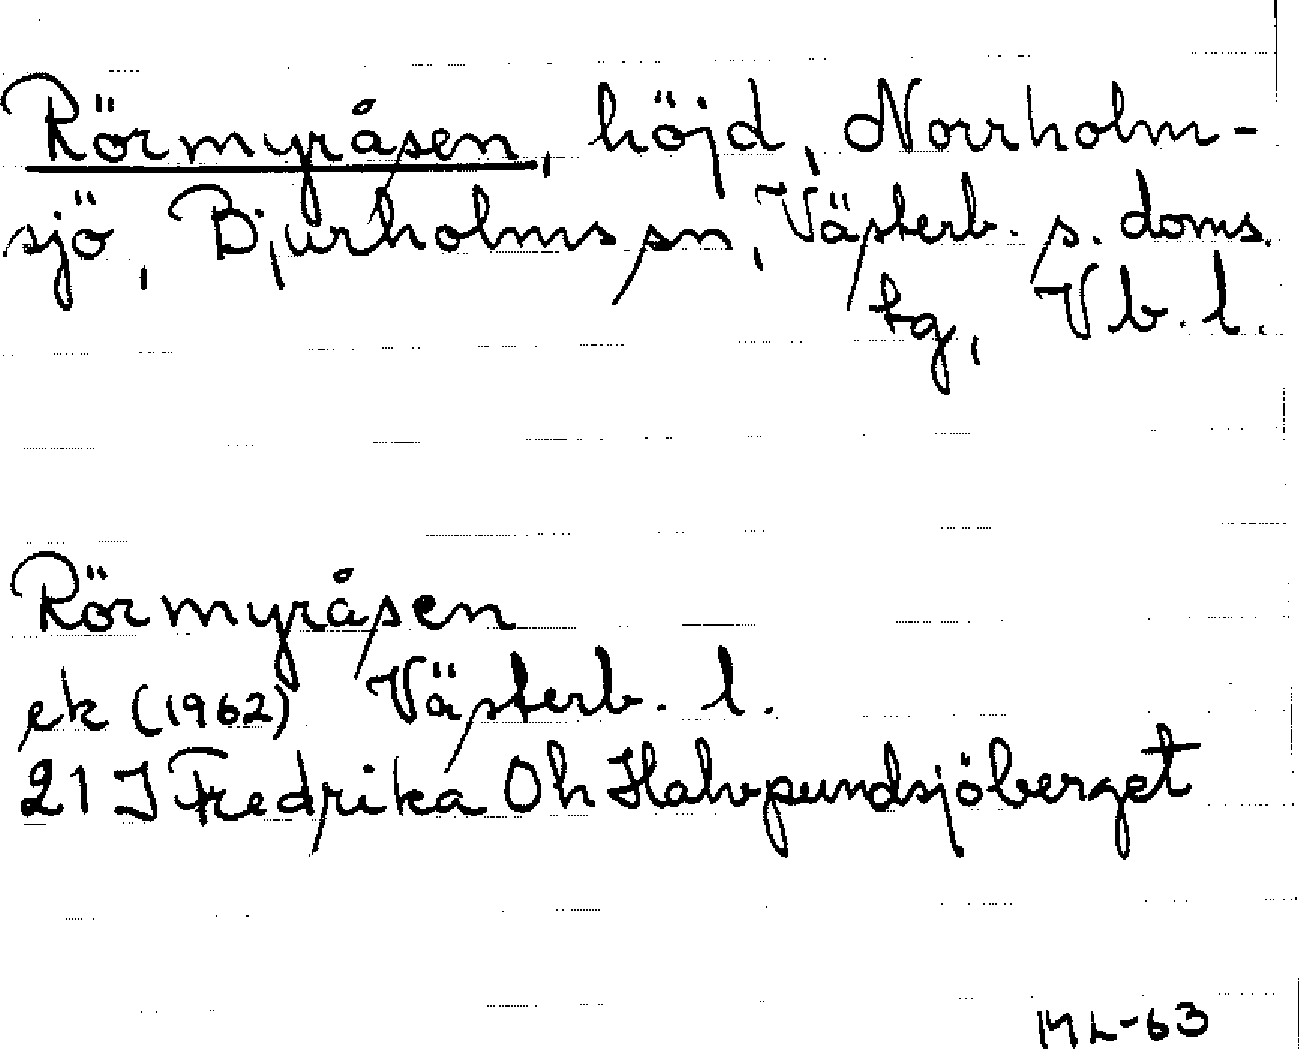 Rörmyråsen, höjd, Norrholm-
sjö, Bjurholms sn, Västerb. s. doms.
tg, Vb. l.
Rörmyråsen
ek (1962) Västerb. l.
21 J Fredrika Oh Halvpundsjöberget
ML-63